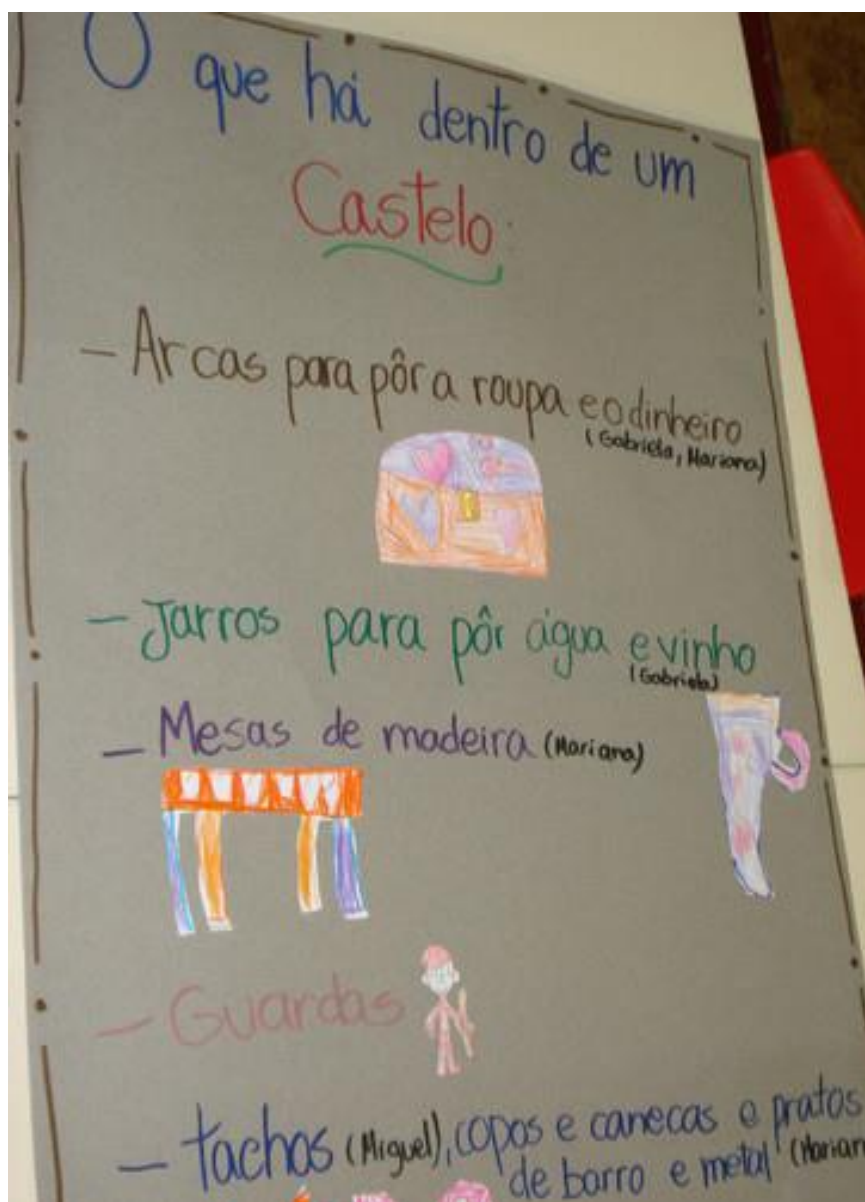 O que há dentro de um
Castelo:
- Arcas para pôr a roupa e o dinheiro
(Gabriela, Mariana)
- Jarros para pôr água e vinho
(Gabriela)
- Mesas de madeira (Mariana)
- Guardas
- tachos (Miguel), copos e canecas e pratos
de barro e metal (Marian